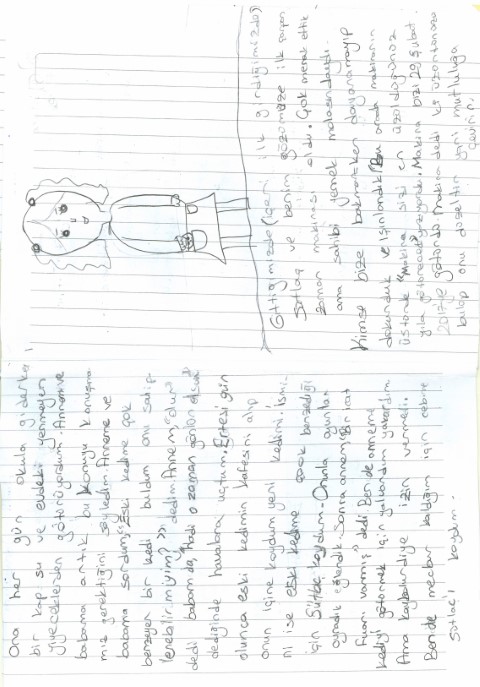 Ona her gün okula giderken
bir kap su ve evdeki yenmeyen
yiyeceklerden götürüyordum. Anneme ve
babama artık bu konuyu konuşma
mız gerektiğini söyledim. Anneme ve
babama sordum, "Eski kedime çok
benzeyen bir kedi buldum onu sahip-
lenebilir miyim?" dedim. Annem, "olur"
dedi babam da, "hadi o zaman gözün aydın"
dediğinde havalara uçtum. Ertesi gün
olunca eski kedimin kafesini alıp
onun içine koydum yeni kedimi. İsmi-
ni ise eski kedime çok benzediği
için Sütlaç koydum. Onunla oyunlar
oynadık eğlendik. Sonra annem Bir icat
fuarı varmış" dedi Ben de anneme
kediyi götürmek için yalvardım yakardım.
Ama kaybolur diye izin vermedi.
Ben de mecbur kaldığım için cebime
Sütlaç'ı koydum.
Gittiğimizde (içeri ilk girdiğimizde)
Sütlaç ve benim gözümüze ilk çarpan
zaman makinası oldu. Çok merak ettik
ama sahibi yemek molasındaydı.
Kimse bize bakmazken dayanamayıp
dokunduk ve ışınlandık. Bu arada makinanın
üstünde "Makina sizi en üzüldüğünüz
yıla götürecek" yazıyordu. Makina bizi 29 Şubat
2017'ye götürdü. Makina dedi ki üzüntünüzü
bulup onu düzeltin yani mutluluğa
çevirin.